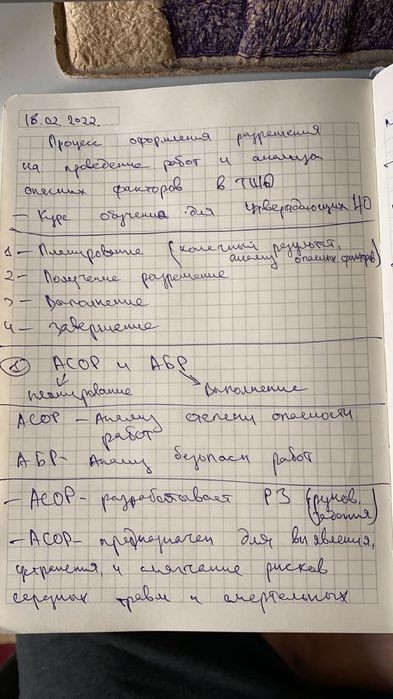 18.02.2022
Процесс оформления разрешения
на проведение работ и анализа
опасных факторов в ТШО
– Курс обучения для утверждающих НО
1 – Планирование (конечный результат,
анализ опасных факторов)
2 – Получение разрешение
3 – Выполнение
4 – Завершение
① АСОР и АБР
планирование Выполнение
АСОР – Анализ степени опасности
работ
АБР – Анализ безопасн работ
– АСОР – разрабатывает РЗ (руков,
задания)
– АСОР – предназначен для выявления,
устранения, и смягчание рисков
серезных травм и смертельных